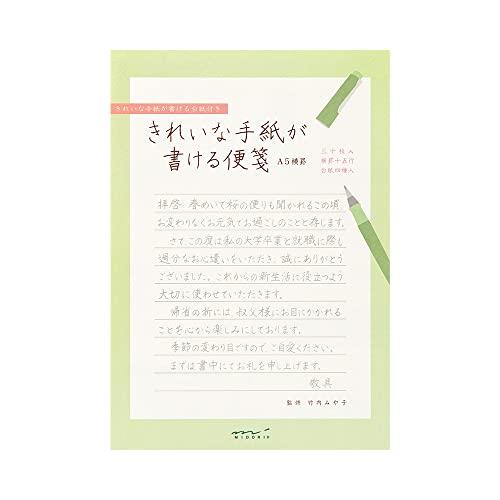 きれいな手紙が書ける台紙付き
きれいな手紙が
書ける便箋 A5横罫
三十枚入
横罫十五行
台紙四種入
拝啓 春めいて桜の便りも聞かれるこの頃
お変わりなくお元気でお過しのことと存します。
さて、この度は私の大学卒業と就職に際し
過分なお心遣いをいただき、誠にありがとう
ございました。これからの新生活に役立つよう
大切に使わせていただきます。
帰省の折には、叔父様にお目にかかれる
ことを心から楽しみにしております。
季節の変わり目ですので、ご自愛ください。
まずは書中にてお礼を申し上げます。
敬具
監修 竹内みや子
MIDORI